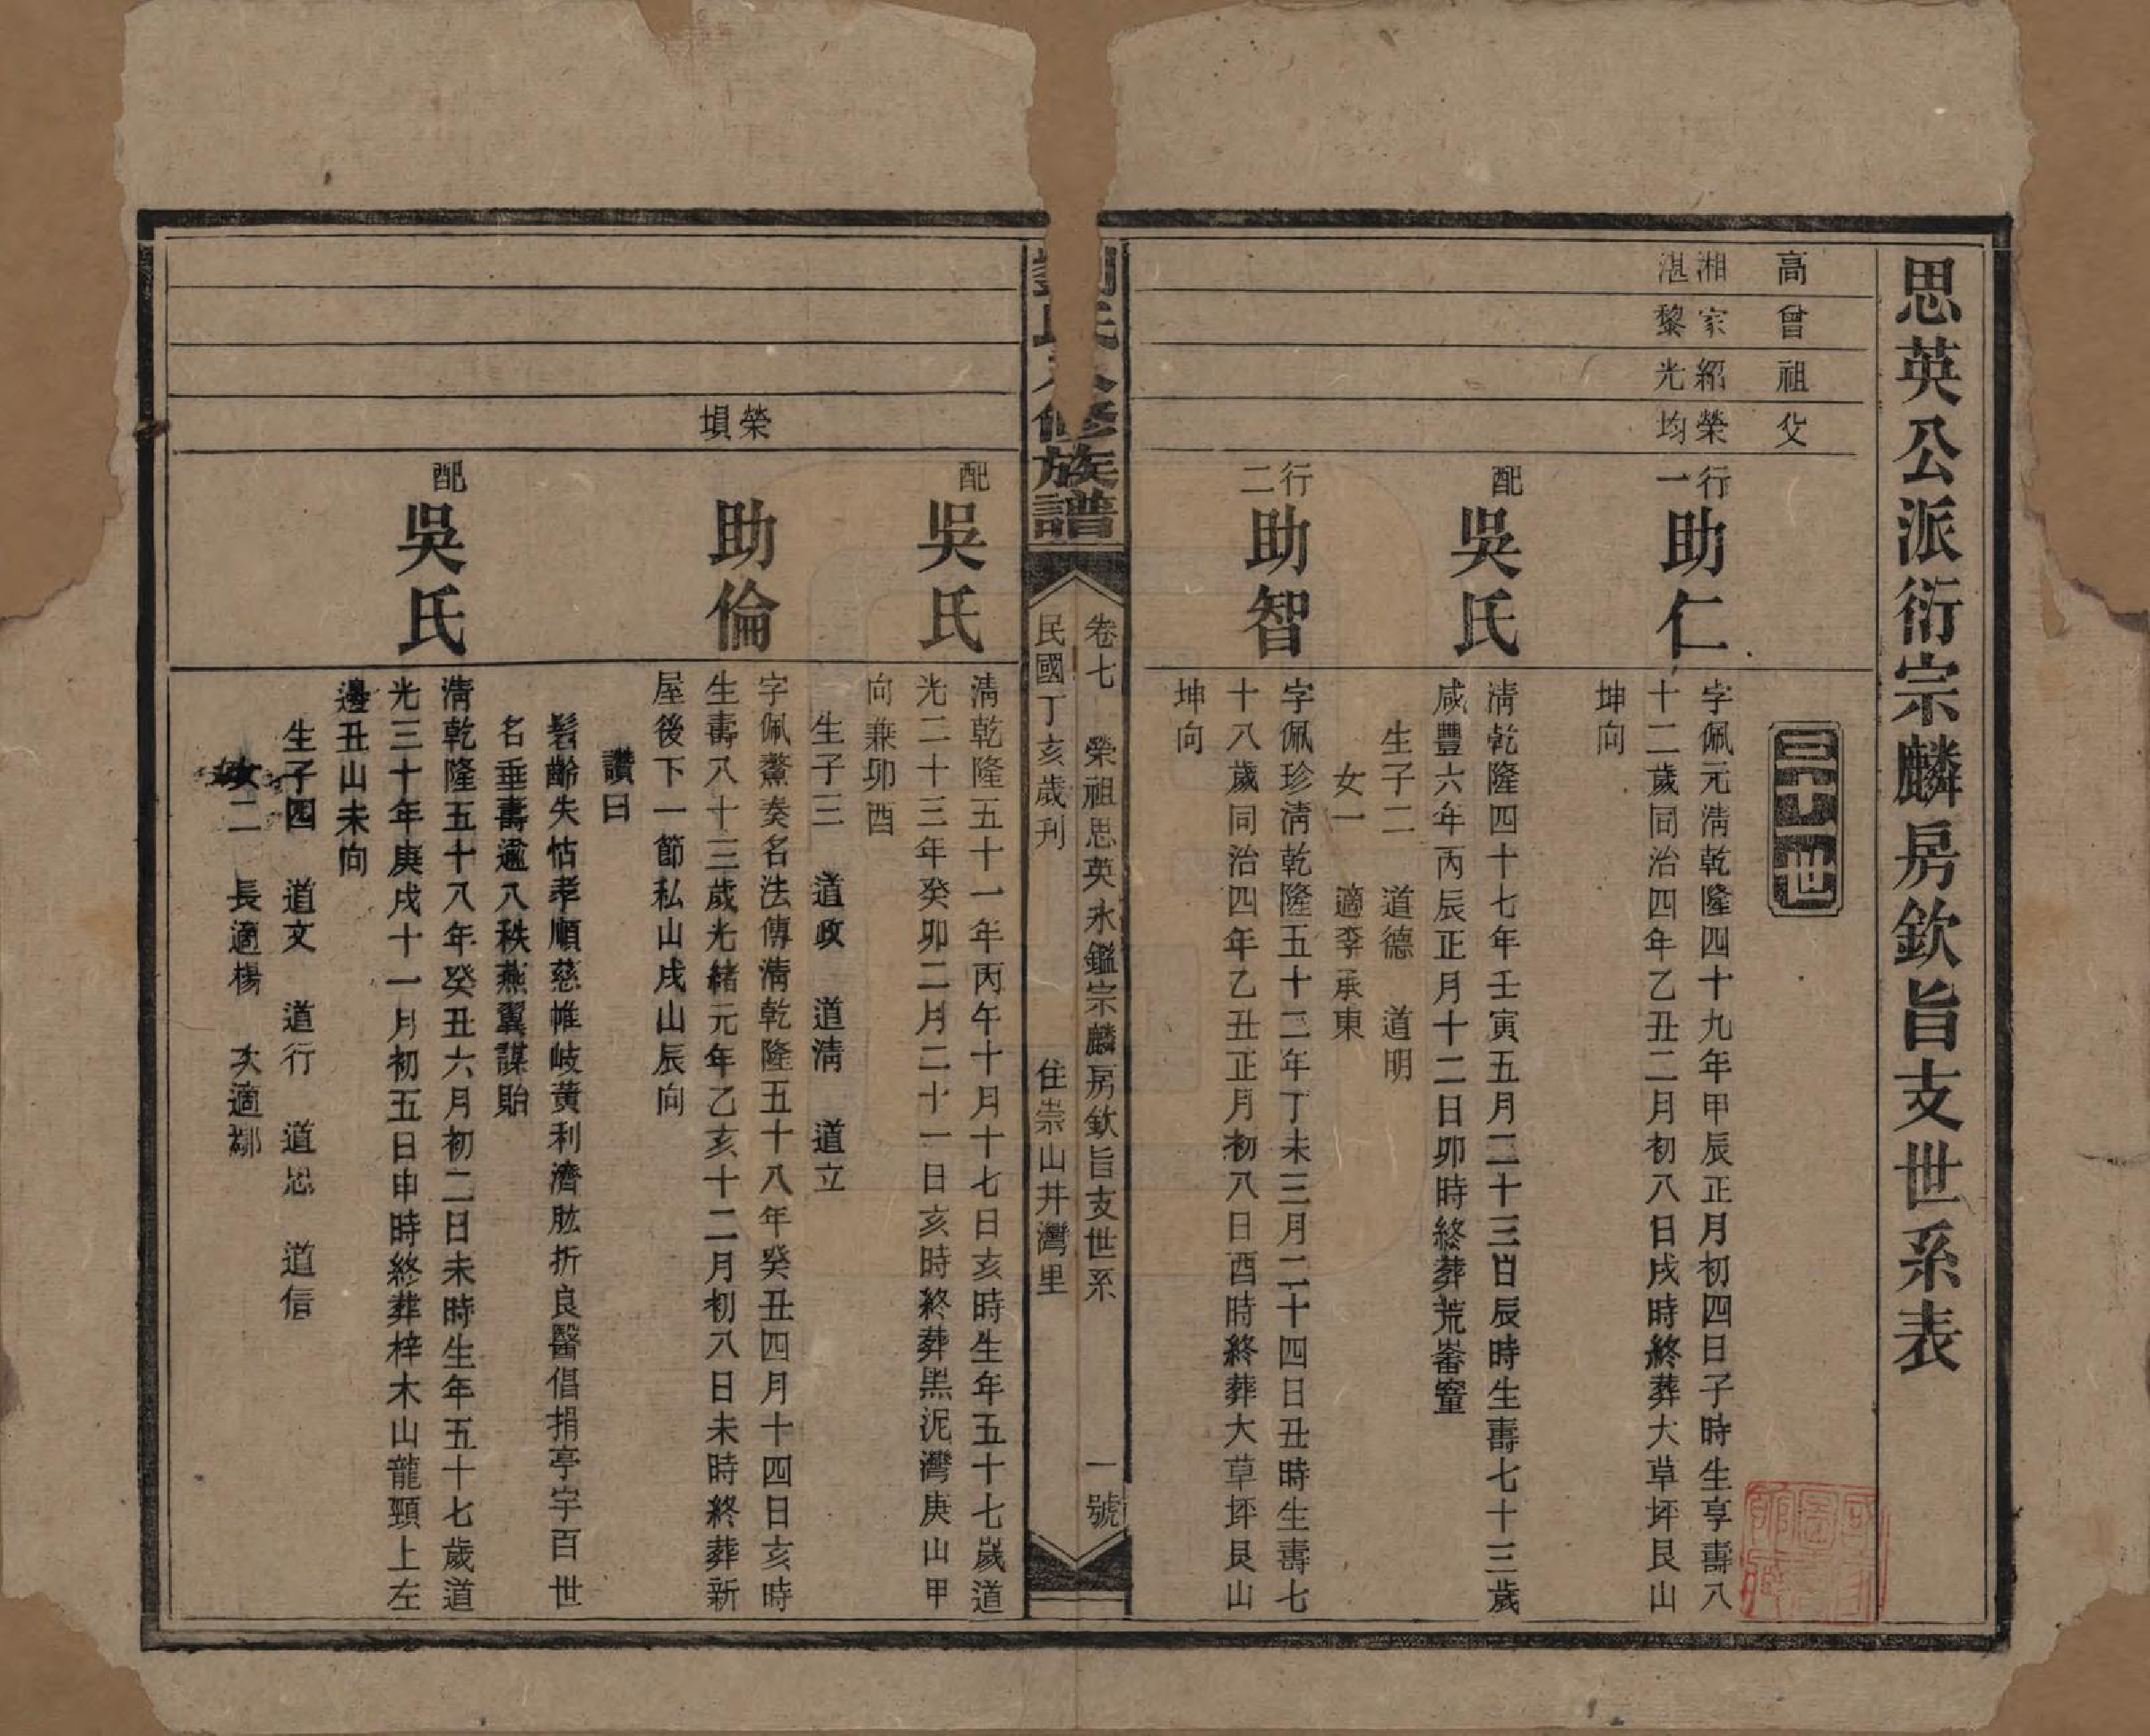 思英公派衍宗麟房欽旨支世系表
高 曾 祖 父
三十二世
湘湛 家黎 紹光 榮均
行一 助仁
字佩元清乾隆四十九年甲辰正月初四日子時生享壽八
十二歲同治四年乙丑二月初八日戌時終葬大草坪艮山
坤向
配 吳氏
清乾隆四十七年壬寅五月二十三日辰時生壽七十三歲
咸豐六年丙辰正月十二日卯時終葬荒崙窰
生子二 道德 道明
女一 適李承東
行二 助智
字佩珍清乾隆五十二年丁未三月二十四日丑時生壽七
十八歲同治四年乙丑正月初八日酉時終葬大草坪艮山
坤向
劉氏 修族譜
卷七 榮祖思英永鑑宗麟房欽旨支世系 一號
民國丁亥歲刊 住崇山井灣里
配 吳氏
清乾隆五十一年丙午十月十七日亥時生年五十七歲道
光二十三年癸卯二月二十一日亥時終葬黑泥灣庚山甲
向兼卯酉
生子三 道政 道清 道立
榮塤
助倫
字佩鰲奏名法傳清乾隆五十八年癸丑四月十四日亥時
生壽八十三歲光緒元年乙亥十二月初八日未時終葬新
屋後下一節私山戌山辰向
讚曰
髫齡失怙孝順慈帷岐黃利濟肱折良醫倡捐亭宇百世
名垂壽逾八秩燕翼謀貽
配 吳氏
清乾隆五十八年癸丑六月初二日未時生年五十七歲道
光三十年庚戌十一月初五日申時終葬梓木山龍頸上左
邊丑山未向
生子四 道文 道行 道思 道信
女二 長適楊 次適鄒